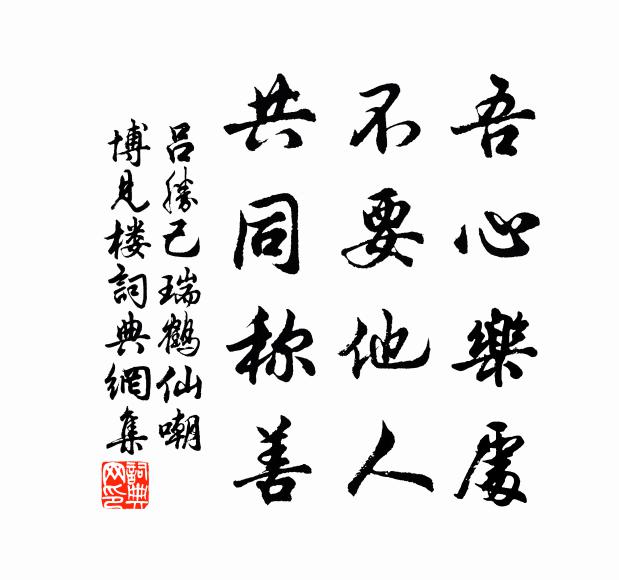 吾心樂處
不要他人
共同称善
呂勝己瑞鶴仙嘲
博見楼詞典網集
詞典网印